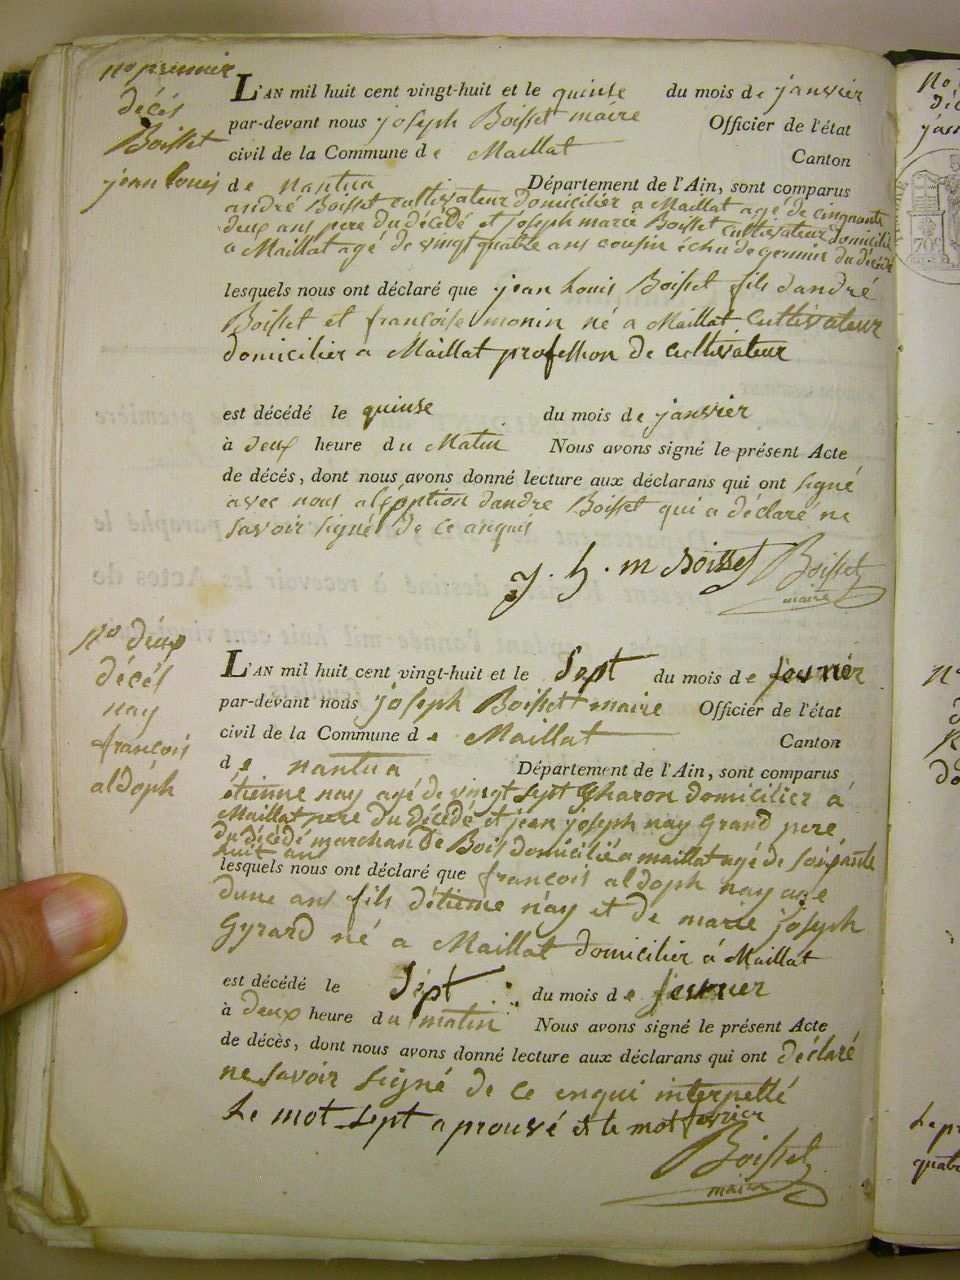 nº premier
décés
Boisset
jean louis
L'AN mil huit cent vingt-huit et le quinse du mois de janvier
par-devant nous joseph Boisset maire Officier de l'état
civil de la Commune de Maillat Canton
de nantua Département de l'Ain, sont comparus
andré Boisset cultivateur domicilier a Maillat agé de cinquante
deux ans pere du décédé et joseph marie Boisset cultivateur domicilié
a Maillat agé de vingt quatre ans cousin de germin du décédé
lesquels nous ont déclaré que jean louis Boisset fils dandré
Boisset et francoise monin né a Maillat cultivateur
domicilier a Maillat profession de cultivateur
est décédé le quinse du mois de janvier
à deux heure du Matin Nous avons signé le présent Acte
de décés, dont nous avons donné lecture aux déclarans qui ont signé
avec nous dandre Boisset qui a déclaré ne
savoir signé de ce anquis
j. h. m Boisset Boisset
maire
nº deux
décés
nay
francois
aldoph
L'AN mil huit cent vingt-huit et le sept du mois de fevrier
par-devant nous joseph Boisset maire Officier de l'état
civil de la Commune de Maillat Canton
de nantua Département de l'Ain, sont comparus
étienne nay agé de vingt sept Charon domicilier a
Maillat pere du décédé et jean joseph nay Grand pere
du décédé marchan de Bois domicilié a maillat agé de soixante
huit ans
lesquels nous ont déclaré que francois aldoph nay age
dune ans fils détienne nay et de marie joseph
Gyrard né a Maillat domicilier á Maillat
est décédé le sept du mois de fevrier
à deux heure du matin Nous avons signé le présent Acte
de décès, dont nous avons donné lecture aux déclarans qui ont déclaré
ne savoir signé de ce enqui interpellé
Le mot sept aprouvé et le mot fevrier
Boisset
maire